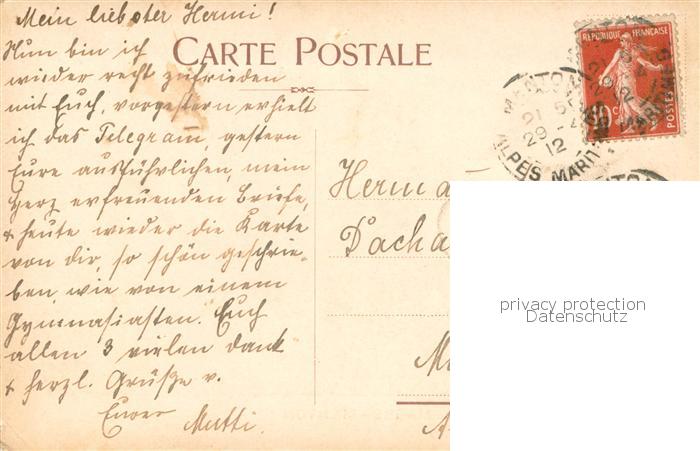 Mein liebster Hermi!
Nun bin ich
wieder recht zufrieden
mit Euch, vorgestern erhielt
ich das Telegram, gestern
Eure ausführlichen, mein
Herz erfreuenden Briefe,
& heute wieder die Karte
von dir, so schön geschrie-
ben, wie von einem
Gymnasiasten. Euch
allen 3 vielen Dank
& herzl. Grüße v.
Eurer
Mutti.
CARTE POSTALE
REPUBLIQUE FRANÇAISE
10c
POSTES
MENTON
21 5
29-4
12
ALPES MARIT
Herma
Dacha
M
A
privacy protection
Datenschutz